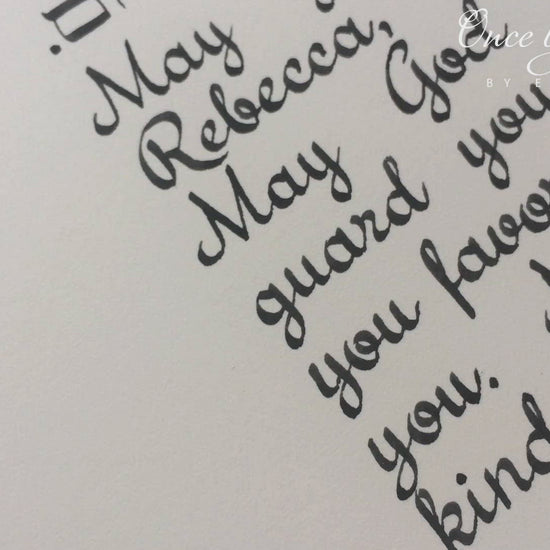 May
Rebecca,
May God
guard you
you favor
you.
kind
Once
BY E